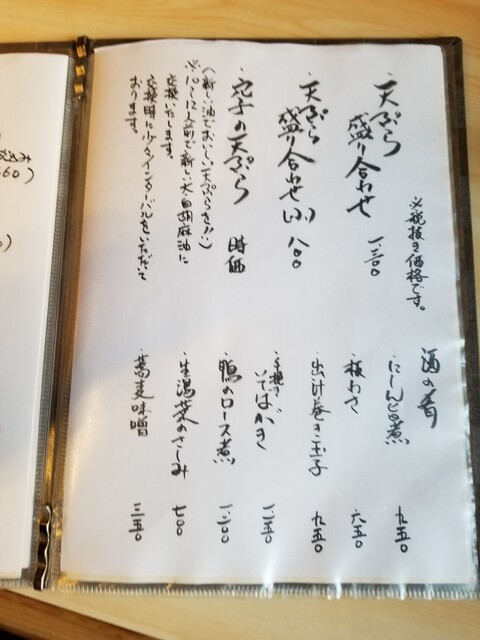 ※税抜き価格です。
・天ぷら
盛り合わせ
一、三〇〇
・天ぷら
盛り合わせ(小)
八〇〇
・穴子の天ぷら
時価
(新しい油でおいしい天ぷらを!!)
※10〜12人前で新しい太白胡麻油に
交換いたします。
交換時に少々インターバルをいただいて
おります。
酒の肴
・にしん旨煮
九五〇
・板わさ
六五〇
・出汁巻き玉子
九五〇
・手挽き
いてばがき
一、二五〇
・鴨ロース煮
一、二〇〇
・生湯葉のさしみ
七〇〇
・蕎麦味噌
三五〇